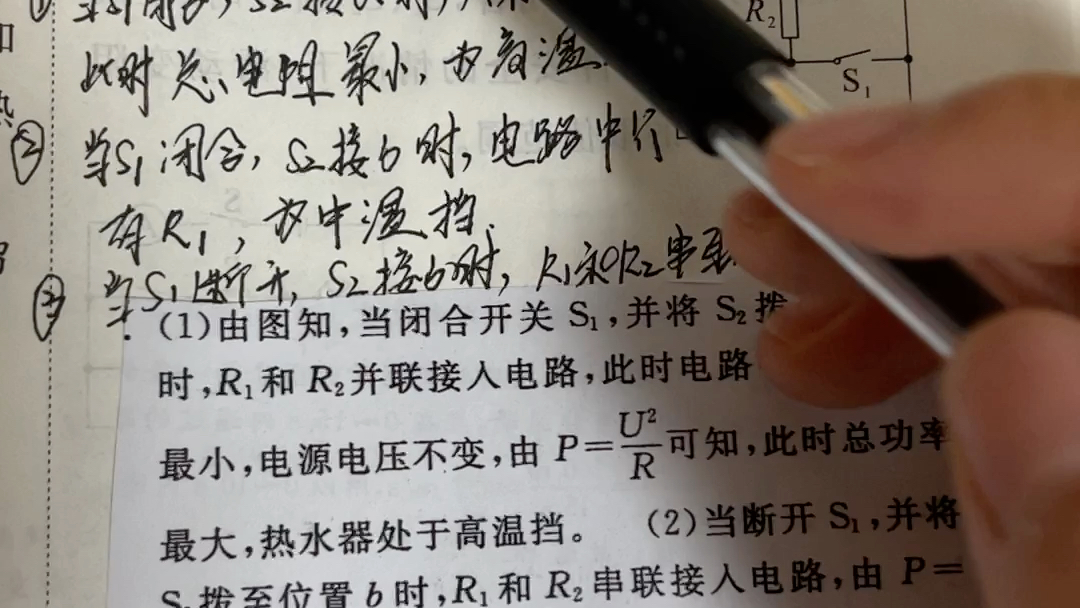 R₂
S₁
此时总电阻最小,为高温
② 当S₁闭合, S₂接b时, 电路中仅
有R₁, 为中温挡.
③ 当S₁断开, S₂接b时, R₁和R₂串联
(1)由图知,当闭合开关 S₁,并将 S₂拨
时,R₁和 R₂并联接入电路,此时电路
最小,电源电压不变,由 P=U²/R可知,此时总功率
最大,热水器处于高温挡。 (2)当断开 S₁,并将
拨至位置 b 时,R₁和 R₂串联接入电路,由 P=